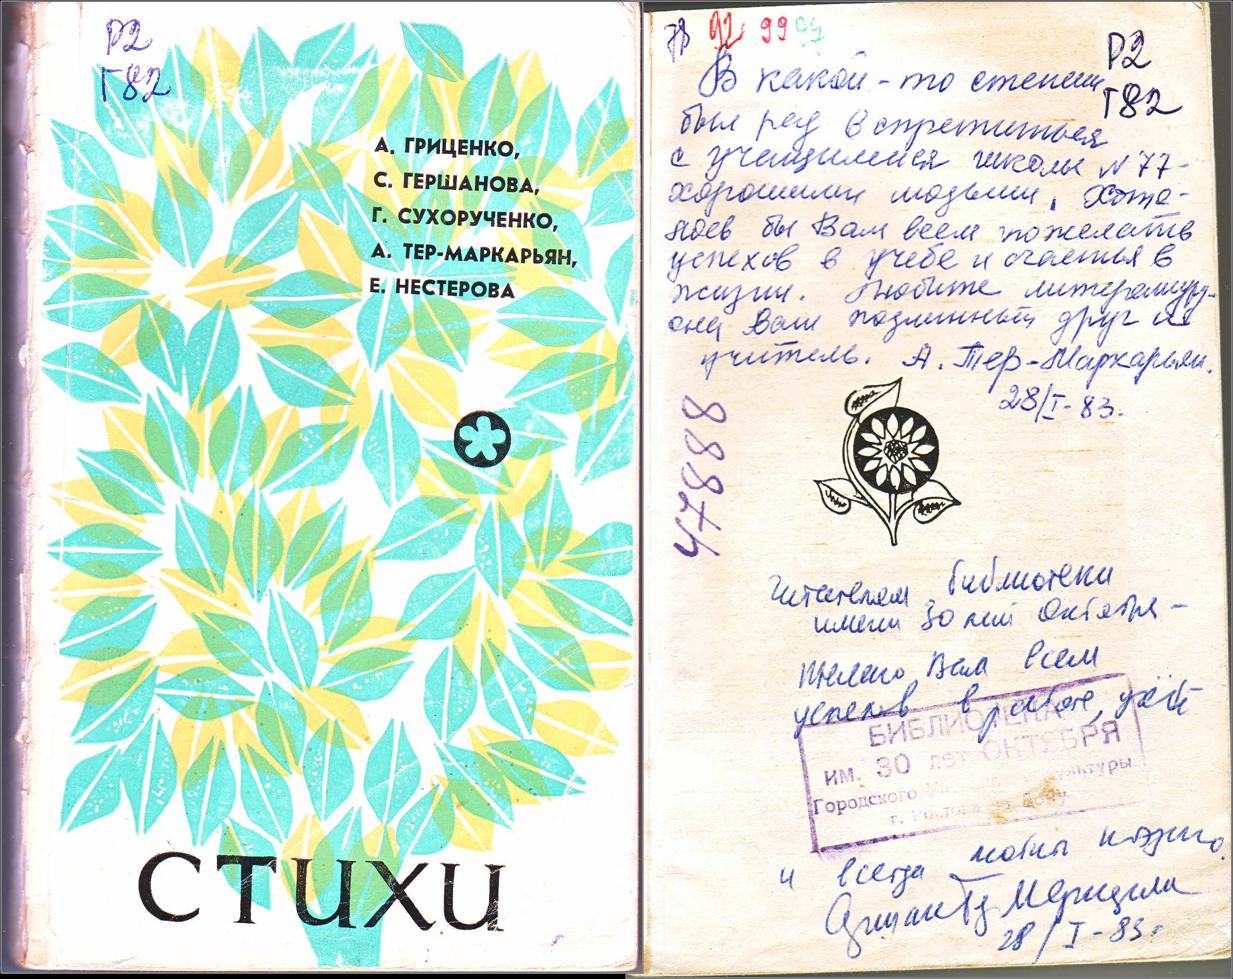 Р2
Г82
А. ГРИЦЕНКО,
С. ГЕРШАНОВА,
Г. СУХОРУЧЕНКО,
А. ТЕР-МАРКАРЬЯН,
Е. НЕСТЕРОВА
СТИХИ
92 99
Р2
Г82
В какой-то степени
был рад встретиться
с учащимися школы N 77-
хорошими людьми. Хоте-
лось бы Вам всем пожелать
успехов в учебе и счастья в
жизни. Любите литературу-
она Ваш подлинный друг и
учитель. А. Тер-Маркарьян.
28/I-83.
47888
Читателям библиотеки
имени 30 лет Октября-
желаю Вам всем
успехов в работе, учёбе
БИБЛИОТЕКА
им. 30 лет ОКТЯБРЯ
Городского культуры
г. Ростова на Дону
и всегда любить поэзию.
28/I-83г.